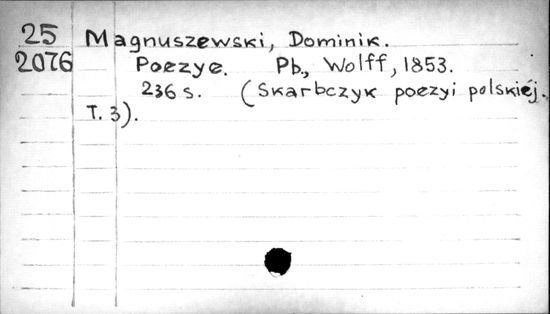 25 Magnuszewski, Dominik.
2076 Poezye. Pb., Wolff, 1853.
236 s. (Skarbczyk poezyi polskiéj.
T. 3).